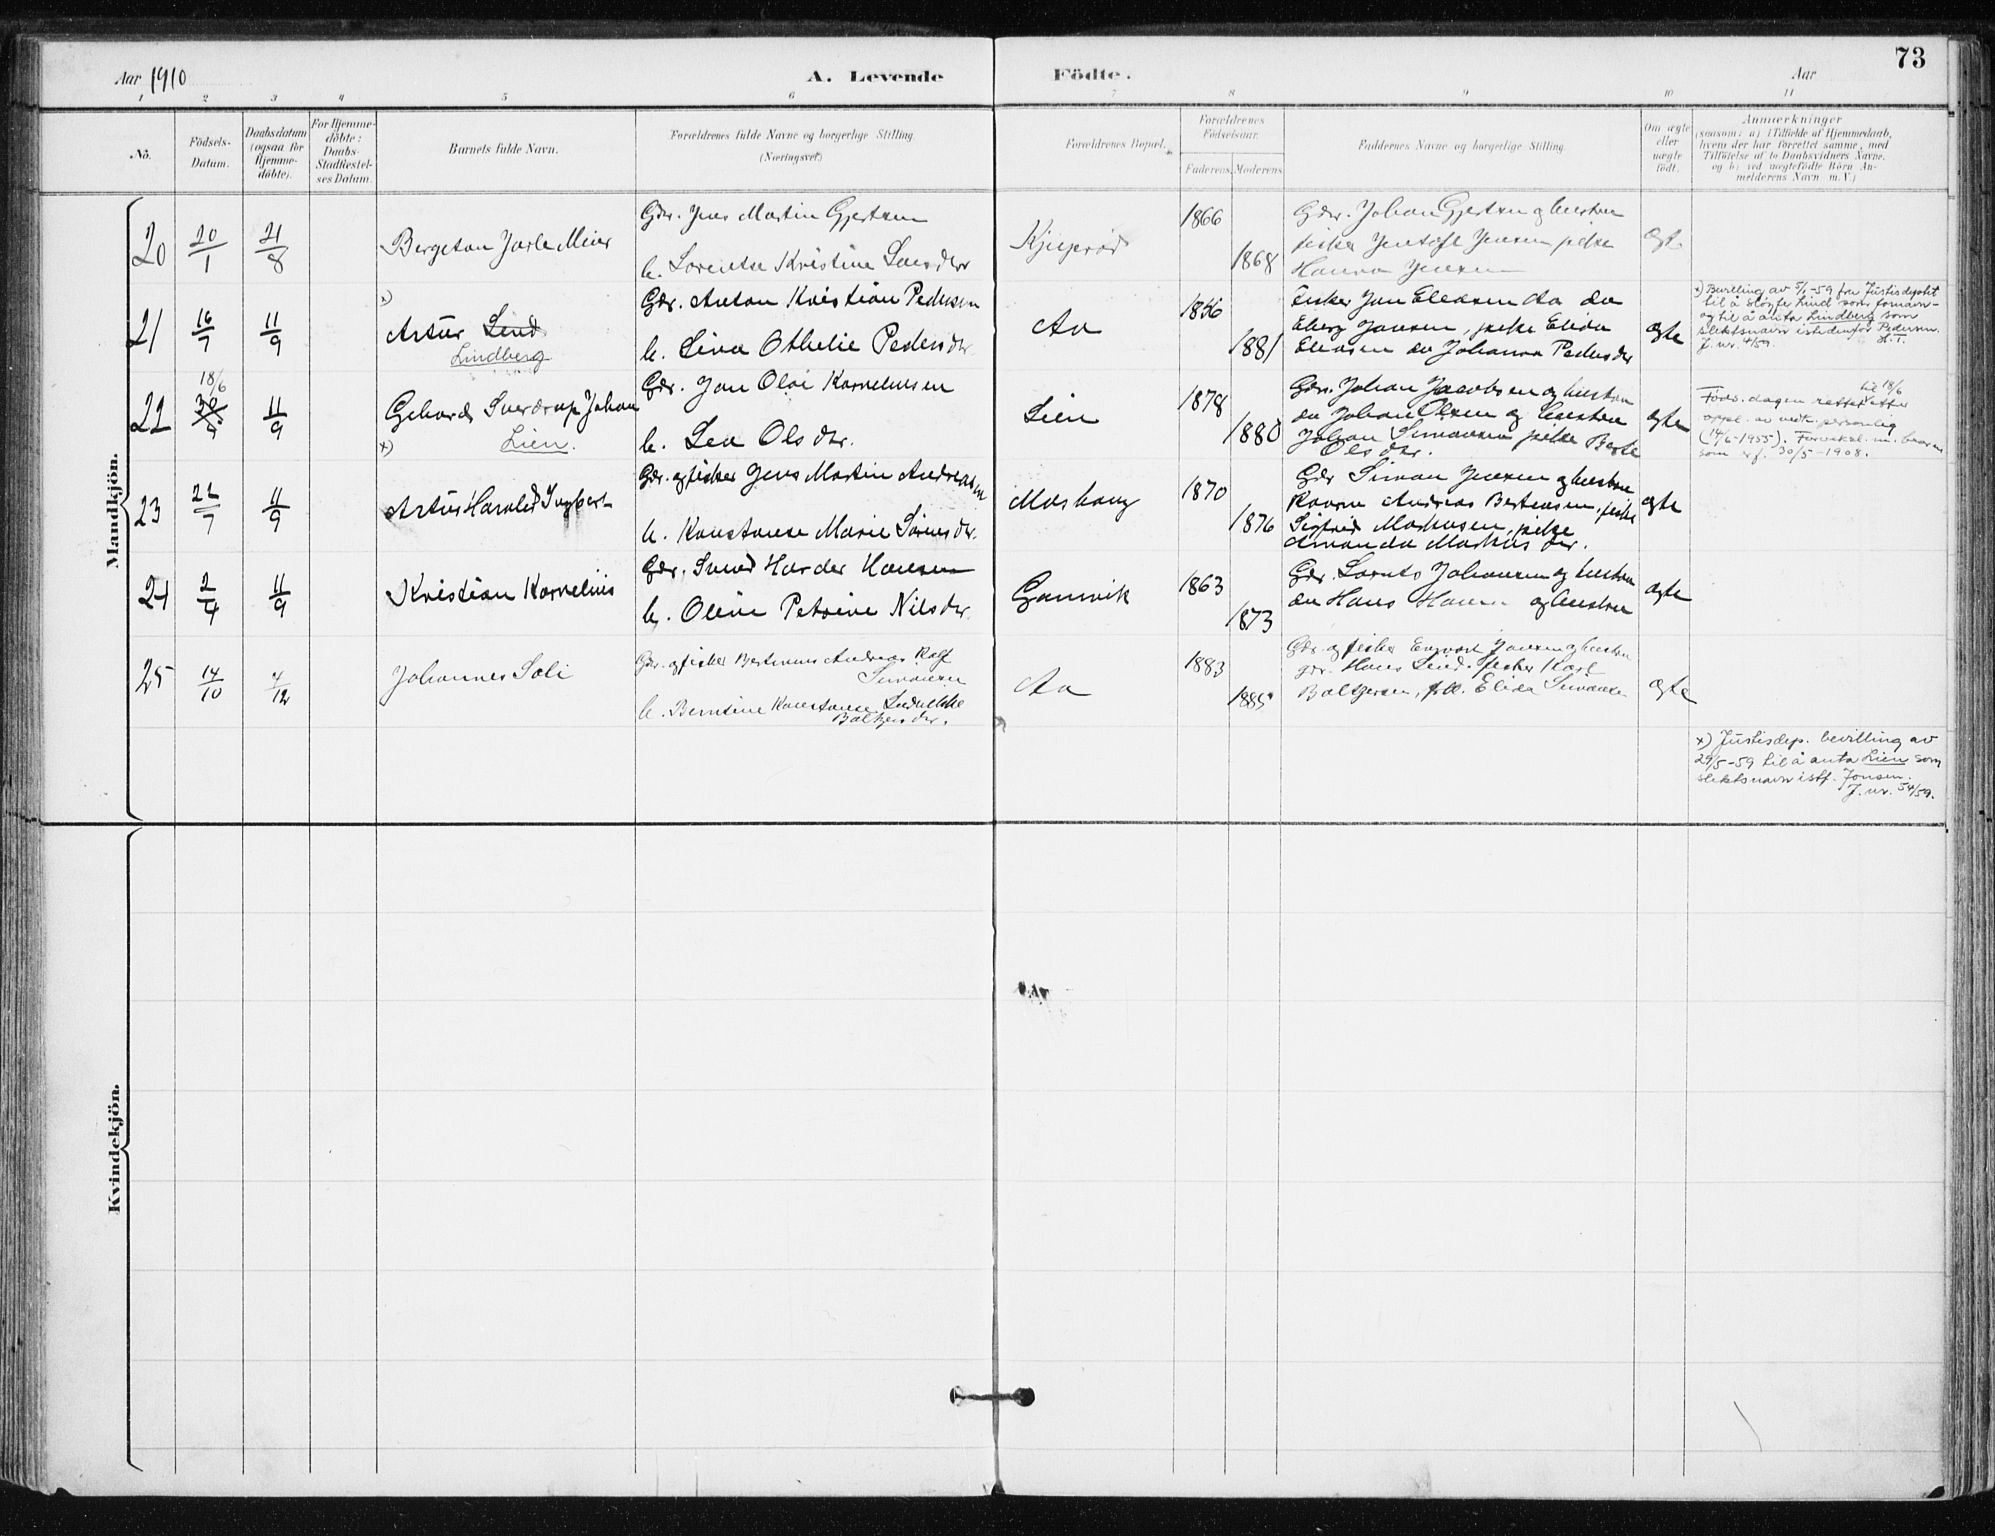 73
Aar 1910
A. Levende
Födte.
Aar
1 2 3 4 5 6 7 8 9 10 11
No.
Födsels-Datum.
Daabsdatum (ogsaa for Hjemme-döbte).
For Hjemme-döbte: Daabs-Stadfæstel-ses Datum.
Barnets fulde Navn.
Forældrenes fulde Navne og borgerlige Stilling.
(Næringsvei.)
Forældrenes Bopæl.
Forældrenes Födselsaar.
Faderens. Moderens.
Faddernes Navne og borgerlige Stilling.
Om ægte eller uægte födt.
Anmærkninger
(saasom: a) i Tilfælde af Hjemmedaab,
hvem der har forrettet samme, med
Tilföielse af to Daabsvidners Navne,
og b) ved uægtefödte Börn An-
melderens Navn m. V.)
Mandkjön.
20 20/1 21/8
Bergeton Jarle Meier
Gdr. Jens Martin Gjertsen
h. Lorentse Kristine Larsdtr
1866
1868
Gdr. Johan Gjertsen og hustru
fisker Jentoft Jensen pike
Hanna Jensen
ægte
21 16/7 11/9
x)
Artur Lind
Lindberg
Gdr. Anton Kristian Pedersen
h. Lina Othelie Pedersdtr.
Aa
1856
1881
Fisker Jan Eleasen Aa do
Eberg Jansen, pike Elida
Eleasen do Johanna Pedersdtr
ægte
x) Bevilling av 5/1-59 fra Justisdeptet
til å sløyfe Lind som fornavn -
og til å anta Lindberg som
slektsnavn istedenfor Pedersen.
J. nr. 4/59.
22 18/6 11/9
Gehard Sverdrup Johan
x) Lien.
Gdr. Jon Olai Kornelusen
h. Lea Olsdtr.
Lien
1878
1880
Gdr. Johan Jacobsen og hustru
do Johan Olsen og hustru
Johan Simonsen pike Berte
Olsdtr.
ægte
til 18/6
Føds.dagen rettet etter
oppl. av vedk. personlig
(14/6-1955). Forveksl. m. broren
som er f. 30/5-1908.
23 22/7 11/9
Artur Harald Ingbert
Gdr. og fisker Jens Martin Andreassen
h. Konstanse Marie Sørensdtr.
1870
1876
Gdr Simon Jensen og hustru
Kaven Andreas Berteusen, fisker
Sigfried Markusen, pike
Amanda Markusdtr.
ægte
24 2/4 11/9
Kristian Kornelius
Gdr. Svend Harder Hansen
h. Oline Petrine Nilsdtr.
Gamvik
1863
1873
Gdr. Lornts Johansen og hustru
do Hans Hansen og hustru
ægte
25 14/10 4/12
Johannes Soli
Gdr. og fisker Bertinus Andreas Rolf
Simonsen
h. Berntine Konstanse Ludvikke
Baltzersdtr.
Aa
1883
1885
Gdr. og fisker Envart Jensen og hustru
gdr. Hans Lind. fisker Karl
Baltzersen, frk. Elida Simonsen
ægte
x) Justisdep. bevilling av
29/5-59 til å anta Lien som
slektsnavn istf. Jonsen.
J. nr. 54/59.
Kvindekjön.